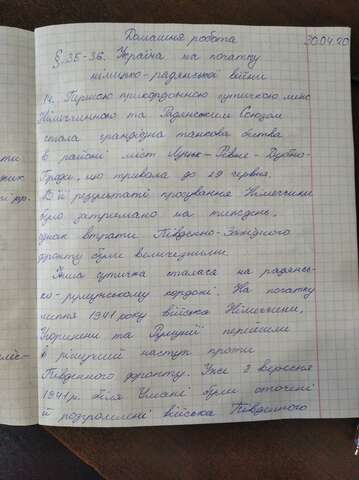 Домашня робота 30.04.20
§ 35-36. Україна на початку
німецько-радянської війни
14. Першою прикордонною сутичкою між
Німеччиною та Радянським Союзом
стала грандіозна танкова битва
в районі міст Луцьк-Рівне-Дубно-
Броди, що тривала до 29 червня.
В її результаті просування Німеччини
було затримано на тиждень,
однак втрати Південно-Західного
фронту були величезними
Інша сутичка сталася на радянсь-
ко-румунському кордоні. На початку
липня 1941 року війська Німеччини,
Угорщини та Румунії перейшли
в рішучий наступ проти
Південного фронту. Уже 2 вересня
1941р. біля Умані були оточені
й розгромлені війська Південного